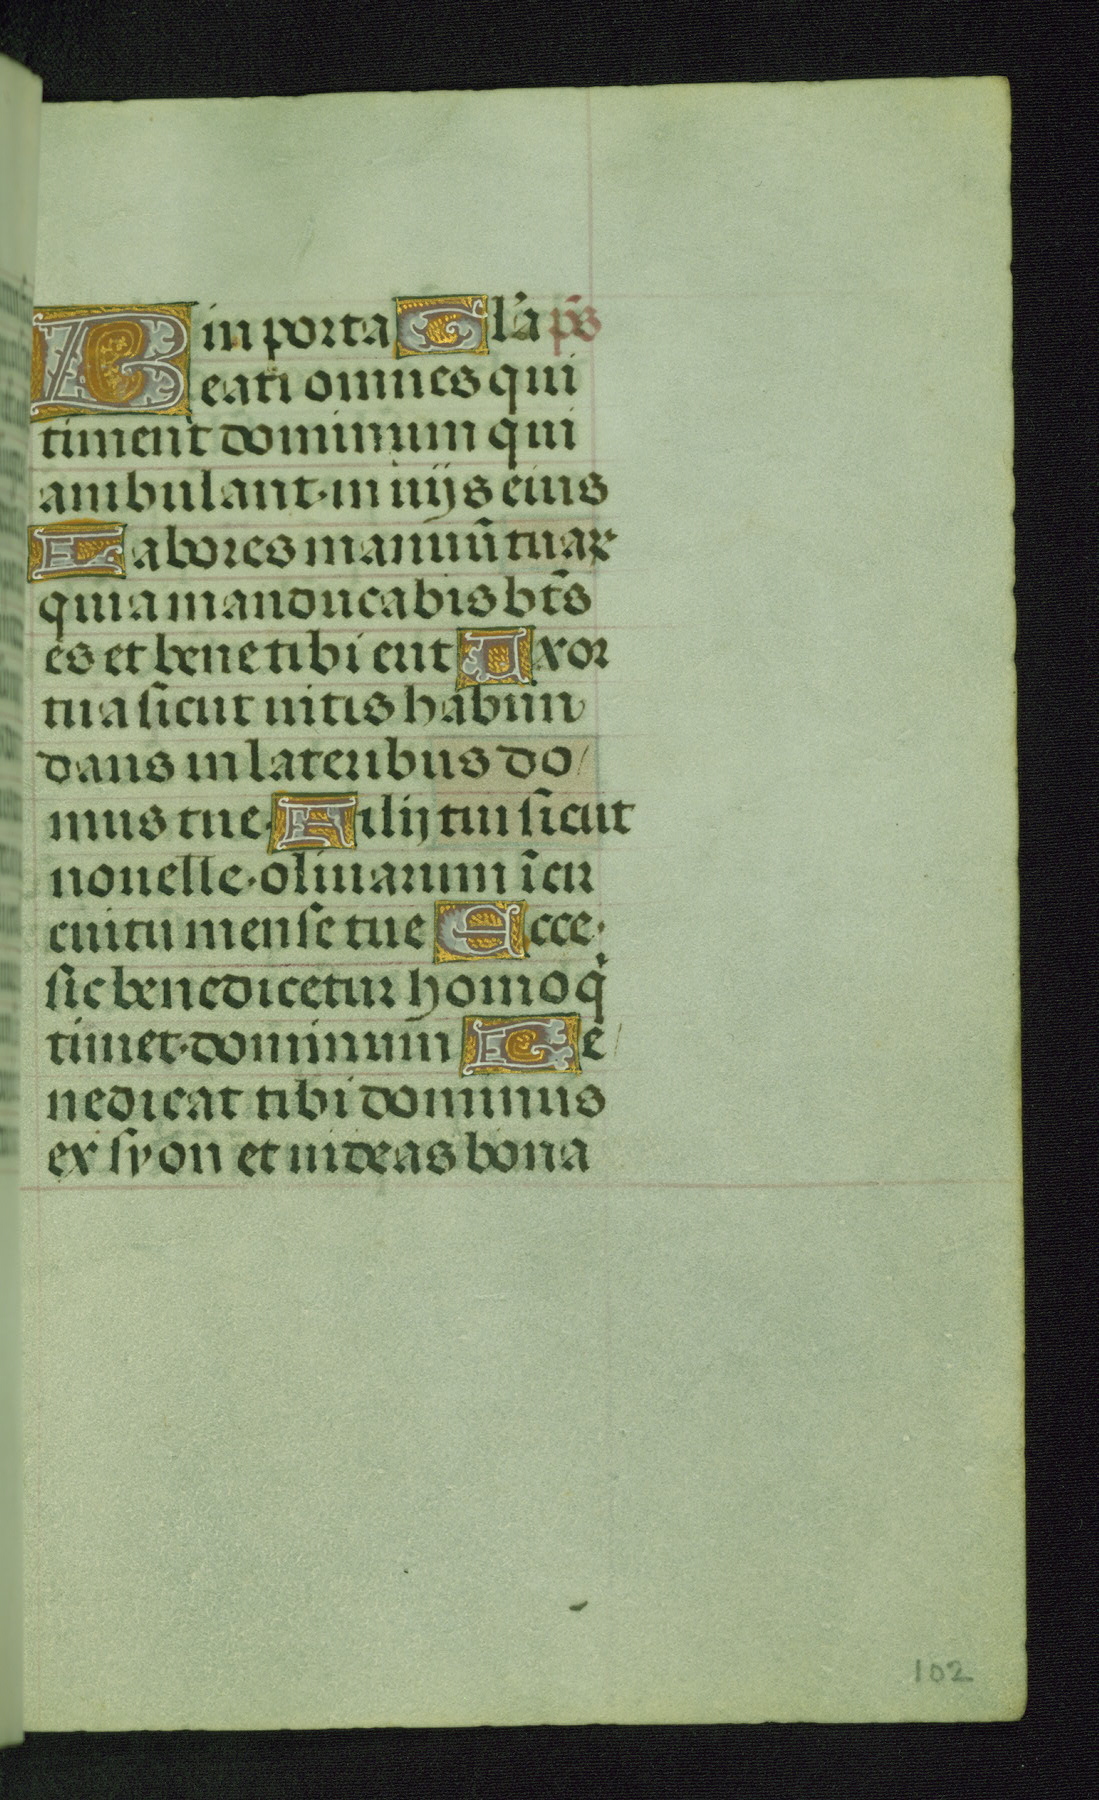 in porta Gl'a ps̄
Beati omnes qui
timent dominum qui
ambulant·in uijs eius
Labores manuū tuaꝝ
quia manducabis bt̄s
es et bene tibi erit Uxor
tua sicut uitis habun
dans in lateribus do/
mus tue·Filij tui sicut
nouelle·oliuarum ī cir
cuitu mense tue Ecce·
sic benedicetur homo q̇
timet·dominum Be/
nedicat tibi dominus
ex syon et uideas bona
102